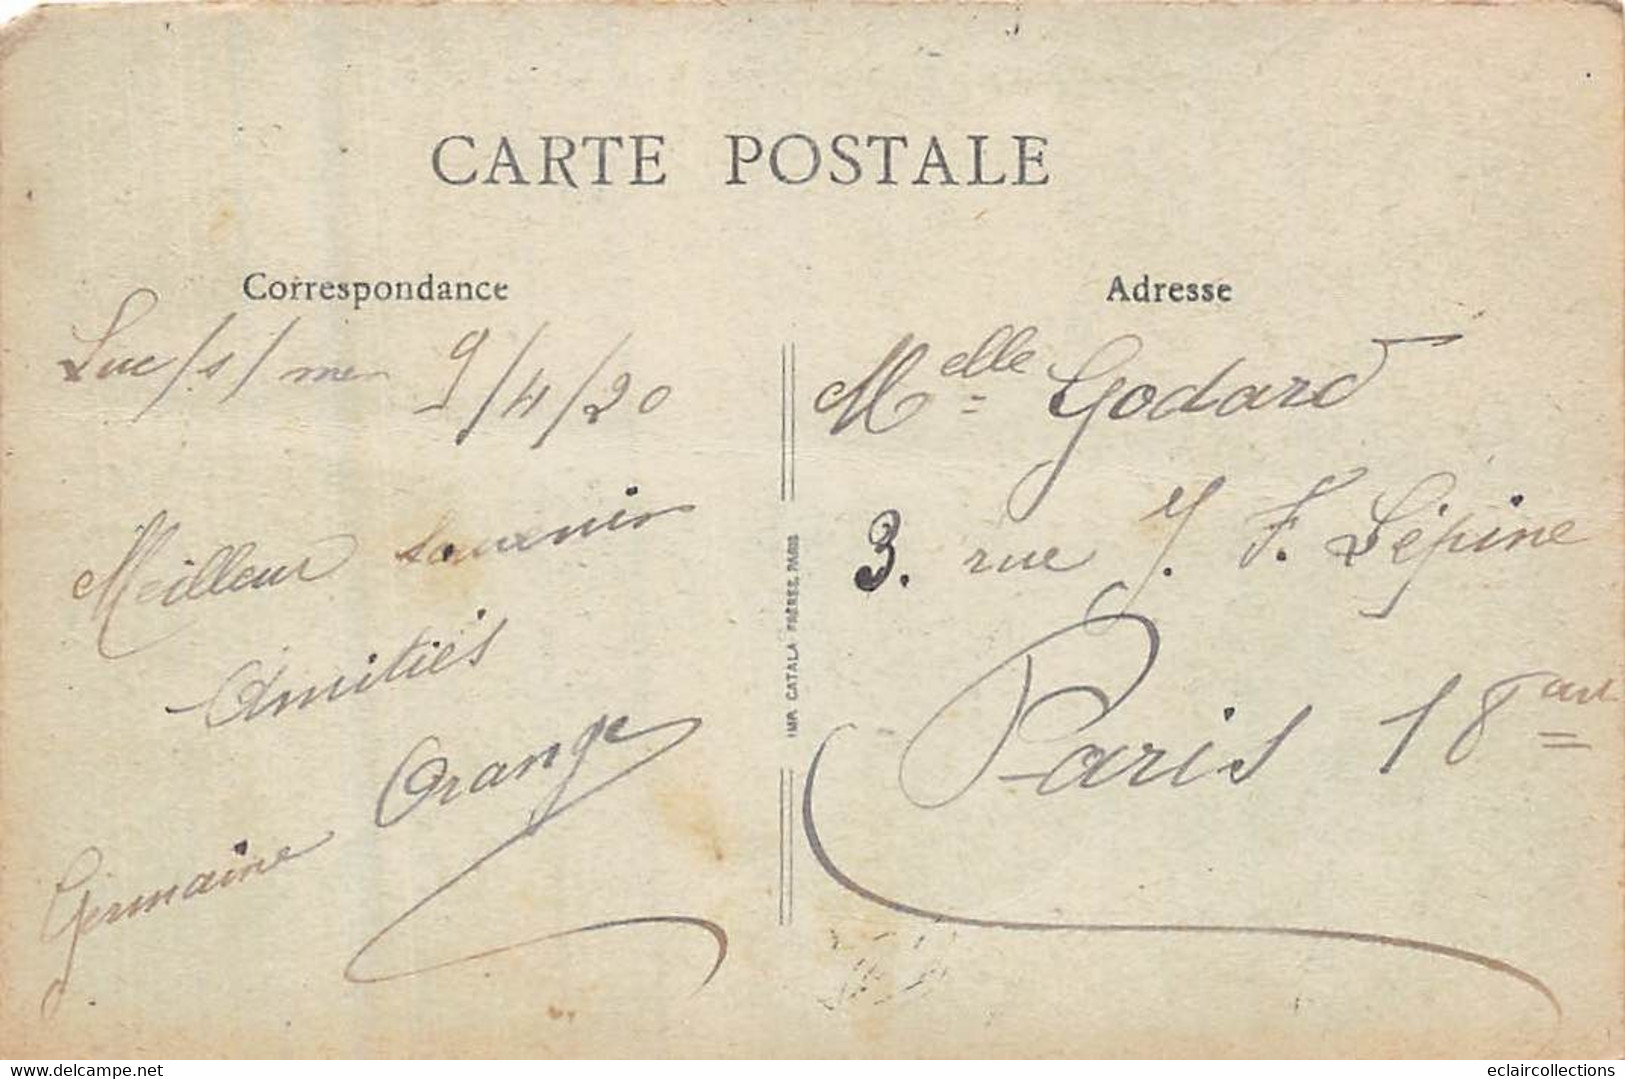 CARTE POSTALE
Correspondance
Luc/s/mer 9/4/20
Meilleur souvenir
Amitiés
Germaine Orange
IMP. CATALA FRÈRES, PARIS
Adresse
Melle Godard
3. rue J. F. Lépine
Paris 18 arrt
www.delcampe.net
eclaircollections